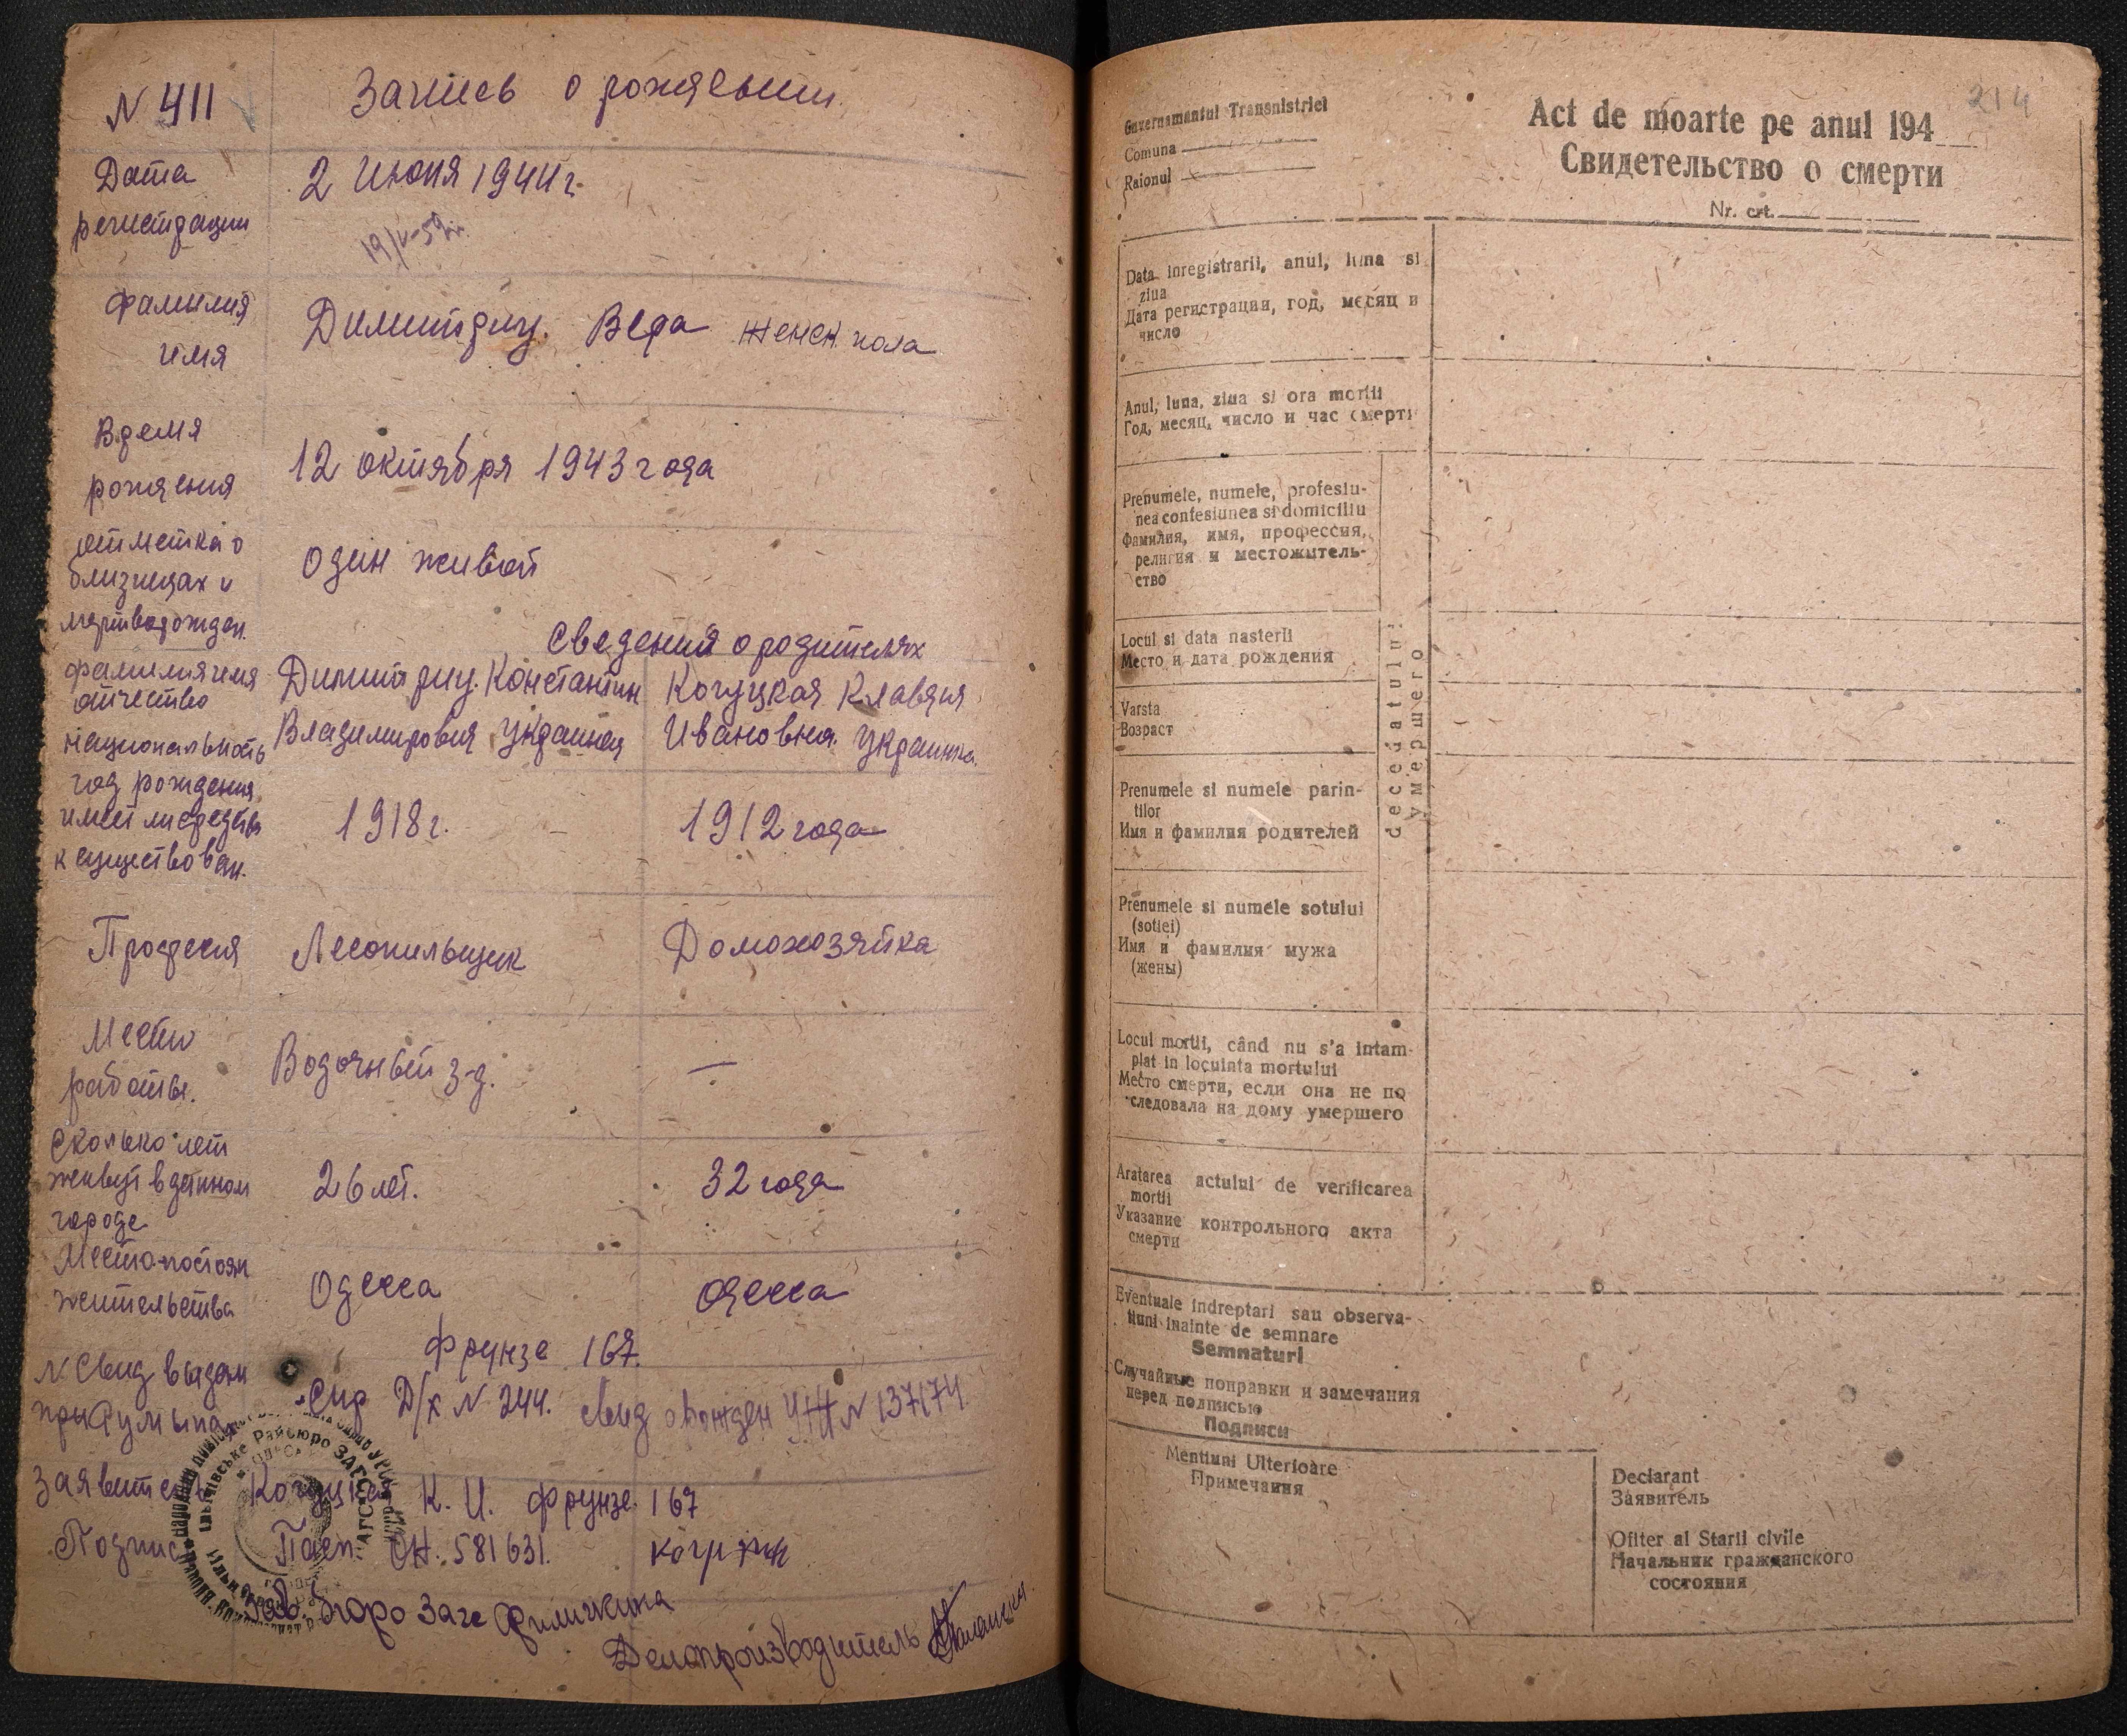 N 411
Запись о рождении
Дата
регистрации
2 Июня 1944 г.
19/V-59г.
фамилия
имя
Димитриу. Вера женск. пола
Время
рождения
12 октября 1943 года
отметка о
близнецах и
мертворожден.
один живой
Сведения о родителях
фамилия имя
отчество
Димитриу. Константин
Когуцкая Клавдия
национальность
Владимирович украинец
Ивановна. украинка.
год рождения
имеет ли средства
к существован.
1918 г.
1912 года
Професия
Лесопильщик
Домохозяйка
Место
работы.
Водочный з-д.
—
Сколько лет
живут в данном
городе
26 лет.
32 года
Место постоян
жительства
Одесса
Одесса
Фрунзе 167.
N Свид выдан
при Румынах
Спр Д/х N 244. Свид о рожден УЖ N 137174.
Заявитель Когуцкая К. И. Фрунзе 167
Подпись Пасп ОН. 581631.
Зав. бюро Загс Филичкина
Делопроизводитель
Райбюро ЗАГС
214
Guvernamantul Transnistriei
Comuna
Raionul
Act de moarte pe anul 194
Свидетельство о смерти
Nr. crt.
Data inregistrarii, anul, luna si
ziua
Дата регистрации, год, месяц и
число
Anul, luna, ziua si ora mortii
Год, месяц, число и час смерти
Prenumele, numele, profesiu-
nea confesiunea si domiciliu
Фамилия, имя, профессия,
религия и местожитель-
ство
Locul si data nasterii
Место и дата рождения
Varsta
Возраст
Prenumele si numele parin-
tilor
Имя и фамилия родителей
Prenumele si numele sotului
(sotiei)
Имя и фамилия мужа
(жены)
decedatului
умершего
Locul mortii, când nu s'a intam-
plat in locuinta mortului
Место смерти, если она не по
следовала на дому умершего
Aratarea actului de verificarea
mortii
Указание контрольного акта
смерти
Eventuale indreptari sau observa-
tiuni inainte de semnare
Semnaturi
Случайные поправки и замечания
перед подписью
Подписи
Mentiuni Ulterioare
Примечания
Declarant
Заявитель
Ofiter al Starii civile
Начальник гражданского
состояния